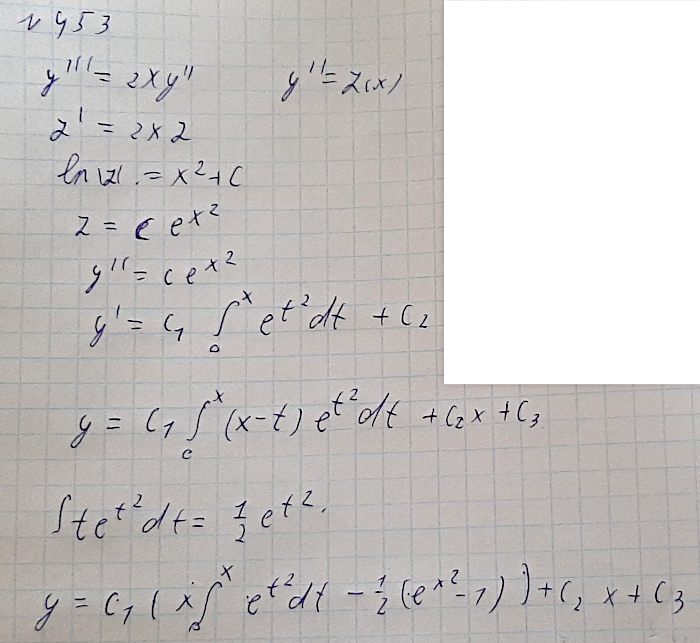 № 453
y''' = 2xy''     y'' = z(x)
z' = 2xz
ln|z| = x² + C
z = C e^{x²}
y'' = C e^{x²}
y' = C₁ ∫₀ˣ e^{t²} dt + C₂
y = C₁ ∫₀ˣ (x-t) e^{t²} dt + C₂x + C₃
∫ t e^{t²} dt = 1/2 e^{t²}.
y = C₁ ( x ∫₀ˣ e^{t²} dt - 1/2 (e^{x²} - 1) ) + C₂ x + C₃